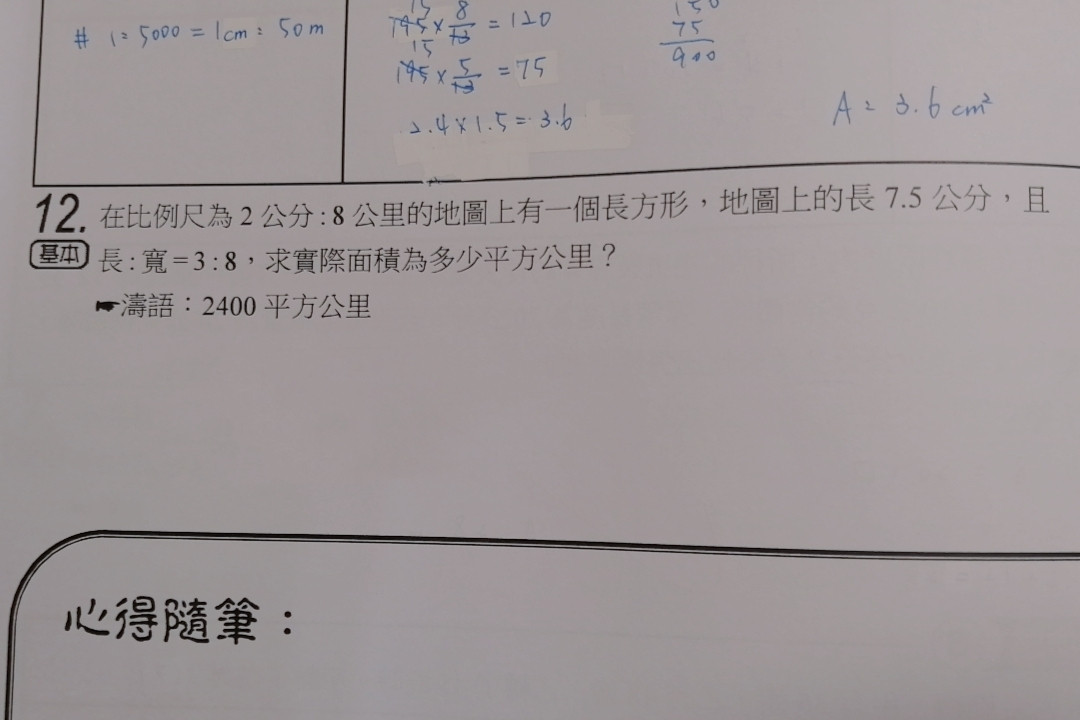 # 1:5000 = 1cm : 50m
15
195 × 8/13 = 120
15
195 × 5/13 = 75
2.4 × 1.5 = 3.6
150
75
900
A = 3.6 cm²
12. 在比例尺為 2 公分 : 8 公里的地圖上有一個長方形,地圖上的長 7.5 公分,且
基本 長 : 寬 = 3 : 8,求實際面積為多少平方公里?
☛濤語:2400 平方公里
心得隨筆: